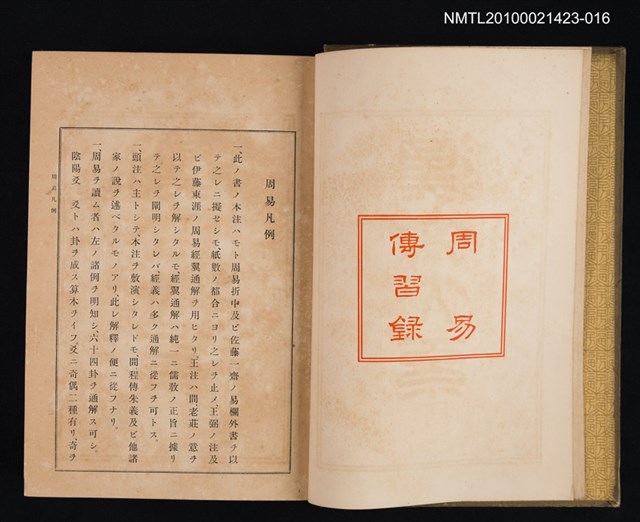 NMTL20100021423-016
周易
傳習錄
周易凡例
一、此ノ書ノ本注ハモト周易折中及ビ佐藤一齋ノ易欄外書ヲ以
テ之レニ擬セシモ、紙數ノ都合ニヨリ之レヲ止メ、王弼ノ注及
ビ伊藤東涯ノ周易經翼通解ヲ用ヒタリ、王注ハ間老莊ノ意ヲ
以テ之レヲ解シタルモ、經翼通解ハ純一ニ儒敎ノ正旨ニ據リ
テ之レヲ闡明シタレバ、經義ハ多ク通解ニ從フヲ可トス、
一、頭注ハ主トシテ、本注ヲ敷演シタレドモ、間程傳朱義及ビ他諸
家ノ說ヲ述ベタルモノアリ此レ解釋ノ便ニ從フナリ、
一、周易ヲ讀ム者ハ左ノ諸例ヲ明知シ、六十四卦ヲ通解ス可シ、
陰陽爻 爻トハ卦ヲ成ス算木ヲイフ、爻ニ奇偶二種有リ、奇ヲ
周易凡例